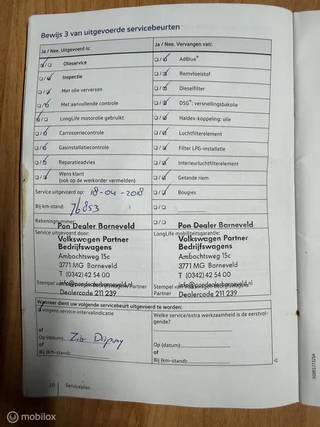 Bewijs 3 van uitgevoerde servicebeurten
Ja / Nee. Uitgevoerd is:
Ja / Nee. Vervangen van:
Olieservice
AdBlue®
Inspectie
Remvloeistof
Met olie verversen
Dieselfilter
Met aanvullende controle
DSG®: versnellingsbakolie
LongLife motorolie gebruikt
Haldex-koppeling: olie
Carrosseriecontrole
Luchtfilterelement
Gasinstallatiecontrole
Filter LPG-installatie
Reparatieadvies
Interieurluchtfilterelement
Wens klant
(ook op de werkorder vermelden)
Getande riem
Service uitgevoerd op: 18-04-2018
Bougies
Bij km-stand: 76853
Rekeningnummer:
Pon Dealer Barneveld
Pon Dealer Barneveld
Service uitgevoerd door:
LongLife mobiliteitsgarantie:
Volkswagen Partner
Bedrijfswagens
Ambachtsweg 15c
3771 MG Barneveld
T (0342) 42 54 00
Dealercode 211 239
Volkswagen Partner
Bedrijfswagens
Ambachtsweg 15c
3771 MG Barneveld
T (0342) 42 54 00
Dealercode 211 239
Wanneer dient uw volgende servicebeurt uitgevoerd te worden:
volgens service-intervalindicatie
Welke service/extra werkzaamheid is de eerstvol-
gende?
of
Op (datum):
Op (datum):
of
of
Bij (km-stand):
Bij (km-stand):
Serviceplan
mobilox